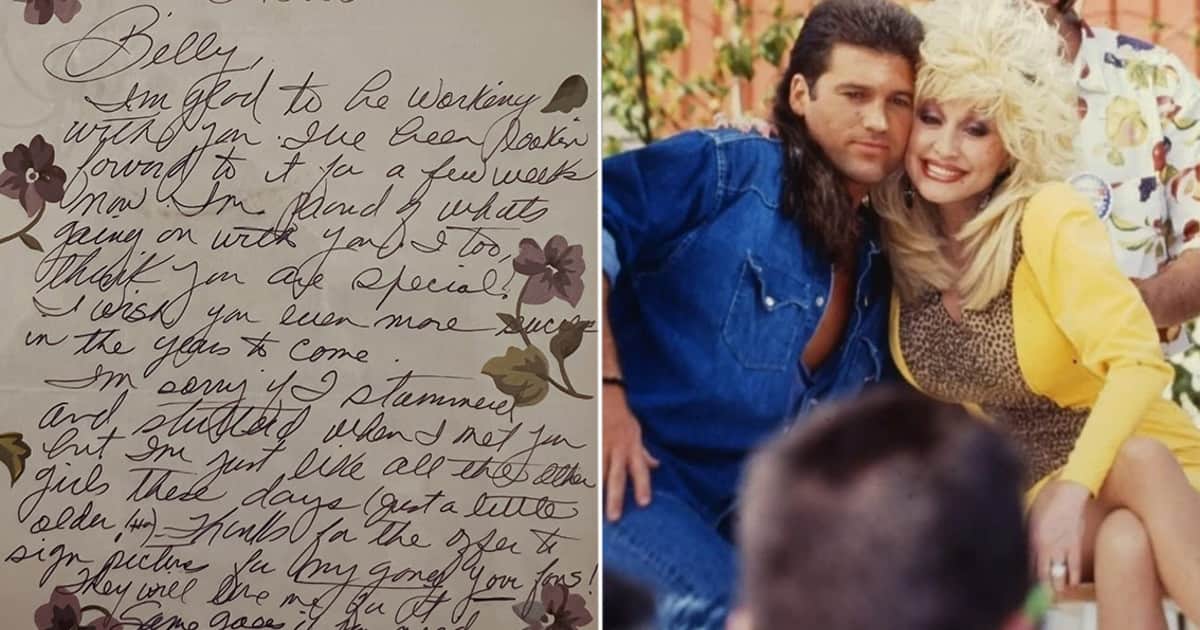 Billy,
I'm glad to be working
with you. I've been lookin
forward to it for a few weeks
now. I'm proud of whats
going on with you. I too,
think you are special!
I wish you even more success
in the years to come.
I'm sorry if I stammered
and stuttered when I met you
but I'm just like all the other
girls these days (just a little
older! (Ha) Thanks for the offer to
sign picture for my gang your fans!
They will love me for it
Same goes if you need